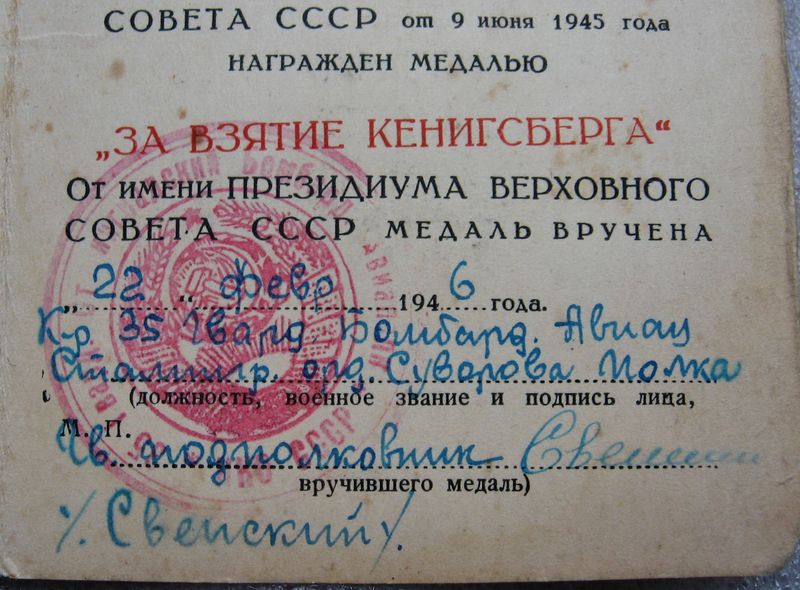 СОВЕТА СССР от 9 июня 1945 года
НАГРАЖДЕН МЕДАЛЬЮ
„ЗА ВЗЯТИЕ КЕНИГСБЕРГА“
От имени ПРЕЗИДИУМА ВЕРХОВНОГО
СОВЕТА СССР МЕДАЛЬ ВРУЧЕНА
„22“ февр 1946 года.
К-р 35 Гвард. Бомбард. Авиац
Сталингр. орд. Суварова Полка
(должность, военное звание и подпись лица,
М. П.
Гв. подполковник
вручившего медаль)
/. Свенский /.
СССР